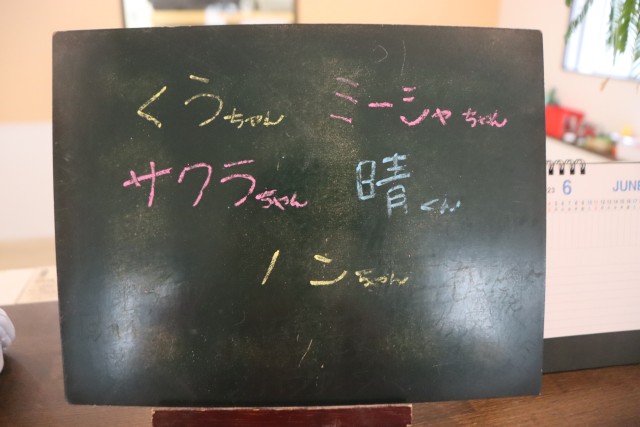 くうちゃん ミーシャちゃん
サクラちゃん 晴くん
ノンちゃん
6 JUNE